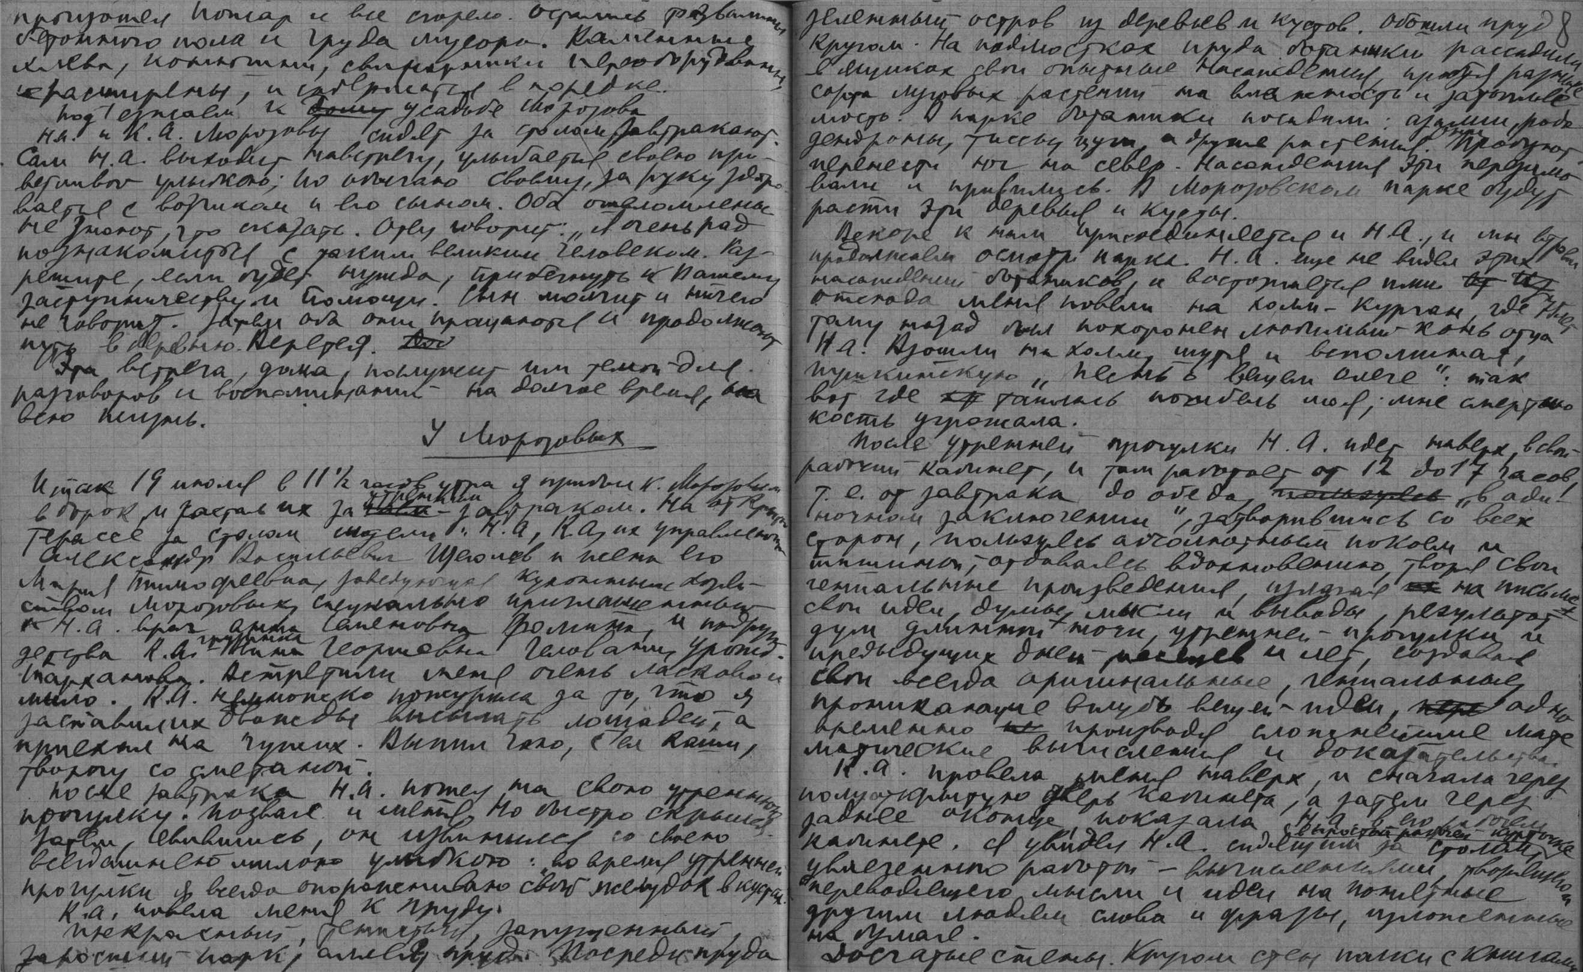 произошел пожар и все сгорело. Остались развалины
бетонного пола и груда мусора. Каменные
хлева, конюшни, свинарники переоборудованы
и расширены, и содержатся в порядке.
Подъезжаем к дому усадьбе Морозова
Н.А. и К.А. Морозовы сидят за столом, завтракают.
Сам Н.А. выходит навстречу, улыбается своею при-
ветливою улыбкою; по обычаю своему, за руку здоро-
вается с возчиком и его сыном. Оба ошеломлены
не знают, что сказать. Отец говорит: „Я очень рад
познакомиться с таким великим человеком. Раз-
решите, если будет нужда, прибегнуть к Вашему
заступничеству и помощи. Сын молчит и ничего
не говорит. Затем оба они прощаются и продолжают
путь в деревню Веретея.
Эта встреча, думаю, послужит им темой для
разговоров и воспоминаний на долгое время, на
всю жизнь.
У Морозовых
Итак 19 июля в 11½ часов утра я прибыл к Морозовым
в Борок, и застал их за утренним завтраком. На открытой
терассе за столом сидели: Н.А, К.А, их управляющий
Александр Васильевич Щеголев и жена его
Мария Тимофеевна, заведующая кухонным хозяй-
ством Морозовых, специально приглашенный
к Н.А. врач Анна Семеновна Фомина, и подруга
детства К.А. грузинка Нина Георгиевна Гелованиурожд.
Тарханова. Встретили меня очень ласково и
мило. К.А. немножко пожурила за то, что я
заставил их дважды высылать лошадей, а
приехал на чужих. Выпил чаю, съел каши,
творогу со сметаной.
После завтрака Н.А. пошел на свою утреннюю
прогулку. Позвал и меня, но быстро скрылся.
Затем, явившись, он извинился со своею
всегдашнею милою улыбкою: во время утренней
прогулки я всегда опоражниваю свой желудок в кустах.
К.А. повела меня к пруду.
Прекрасный, тенистый, запущенный,
заросший парк, аллея, пруд. Посреди пруда
зеленый остров из деревьев и кустов. Обошли пруд 28
кругом. На подмостках пруда ботаники рассадили
в ящиках свои опытные насаждения, пробуя разные
сорта луговых растений на влажность и затопляе-
мость. В парке ботаники посадили: азалии, родо
дендроны, тиссы, и другие растения. Пробуют
перенести юг на север. Насаждения эти перезимо
вали и привились. В Морозовском парке будут
расти эти деревья и кусты.
Вскоре к нам присоединяется и Н.А., и мы втроем
продолжаем осмотр парка. Н.А. еще не видел этих
насаждений ботаников, и восторгается ими
Отсюда меня повели на холм-курган, где лет
тому назад был похоронен любимый конь отца
Н.А. Взошли на холм, шутя и вспоминая,
пушкинскую „Песнь о вещем Олеге“: так
вот где таилась погибель моя; мне смертию
кость угрожала.
После утренней прогулки Н.А. идет наверх, в свой
рабочий кабинет, и там работает от 12 до 17 часов,
т.е. от завтрака до обеда, „в оди-
ночном заключении“, затворившись со всех
сторон, пользуясь абсолютным покоем и
тишиной, отдаваясь вдохновению, творя свои
гениальные произведения, излагая на письме
свои идеи, думы, мысли и выводы, результат
дум длинной ночи, утренней прогулки и
предыдущих дней и лет, создавая
свои всегда оригинальные, гениальные,
проникающие вглубь вещей идеи, одно
временно производя сложнейшие мате
матические вычисления и доказательства.
К.А. провела меня наверх, и сначала через
полуоткрытую дверь кабинета, а затем через
заднее оконце, показала Н.А. в его рабочем
кабинете. Я увидел Н.А. сидящим за столом
увлеченного работой – вычислениями, творившего,
переводящего мысли и идеи на понятные
другим людям слова и фразы, изложенные
на бумаге.
Досчатые стены. Кругом стен полки с книгами